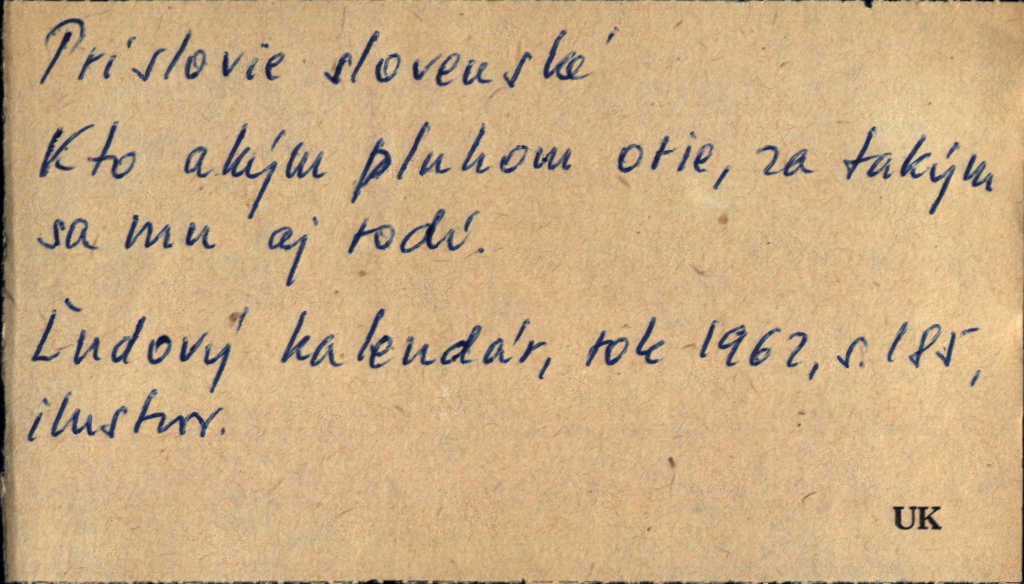 Príslovie slovenské
Kto akým pluhom orie, za takým
sa mu aj rodí.
Ľudový kalendár, rok 1962, s. 185,
ilustrr.
UK